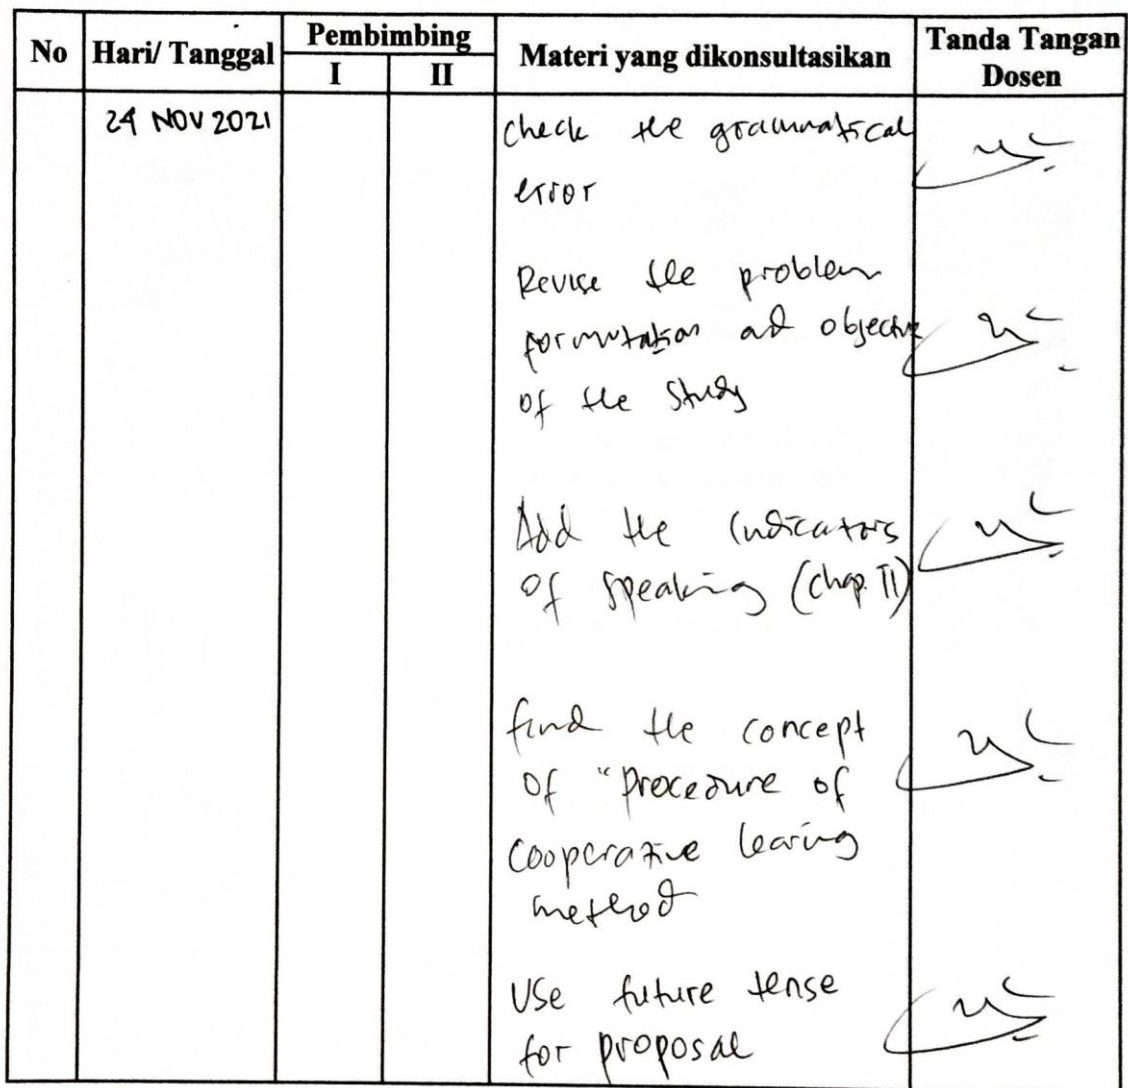 No Hari/ Tanggal Pembimbing Materi yang dikonsultasikan Tanda Tangan Dosen
I II
24 NOV 2021
Check the grammatical
error
Revise the problem
formulation and objective
of the study
Add the indicators
of speaking (chap. II)
find the concept
of "procedure of
cooperative learing
method
Use future tense
for proposal